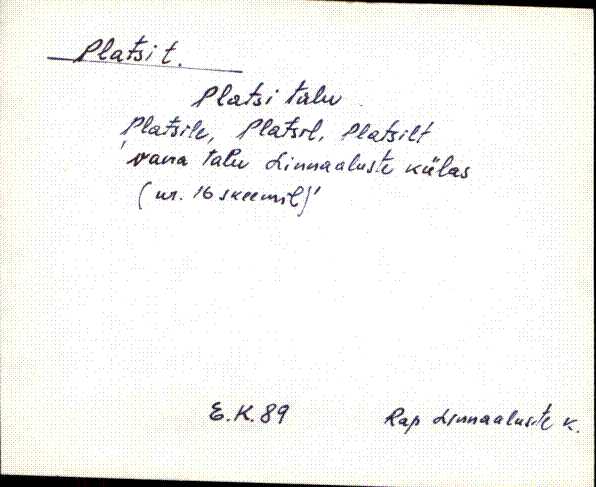 Platsi t.
Platsi talu
Platsile, Platsil, Platsilt
'vana talu Linnaaluste külas
(nr. 16 skeemil)'
E.K. 89
Rap Linnaaluste k.